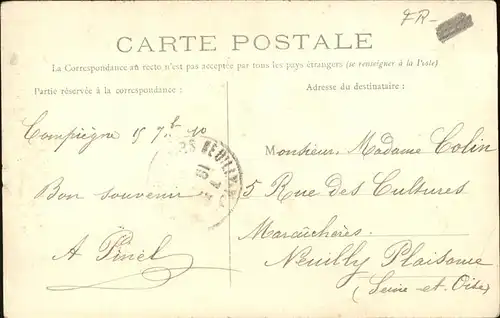 FR-
CARTE POSTALE
La Correspondance au recto n'est pas acceptée par tous les pays étrangers (se renseigner à la Poste)
Partie réservée à la correspondance :
Compiègne 15 7bre 10
Bon souvenir
A Pinel
Adresse du destinataire :
Monsieur, Madame Colin
5 Rue des Cultures
Maraîchères.
Neuilly Plaisance
(Seine-et-Oise)
NEUILLY